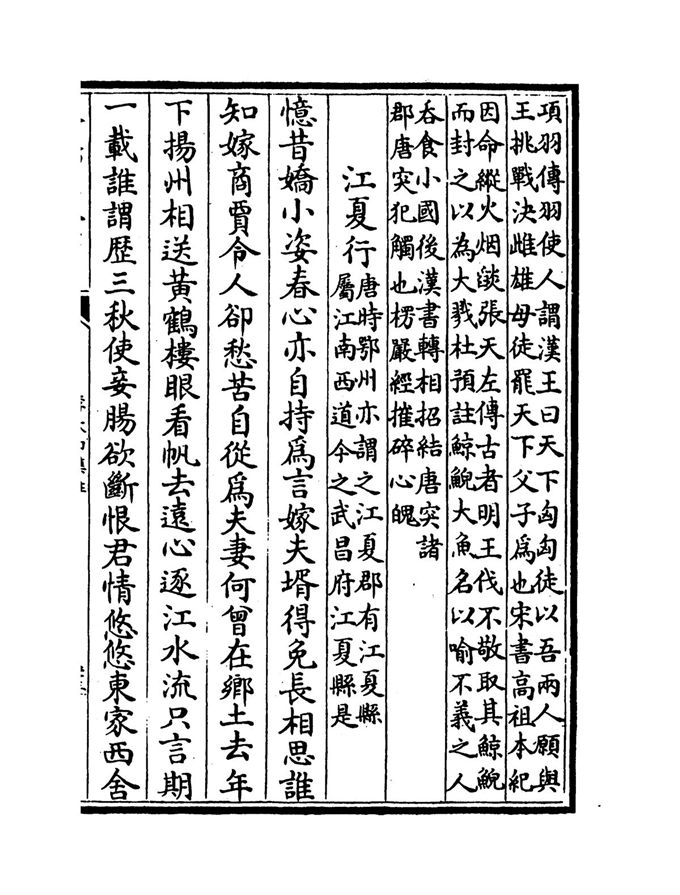 項羽傳羽使人謂漢王曰天下匈匈徒以吾兩人願與
王挑戰決雌雄毋徒罷天下父子爲也宋書高祖本紀
因命縱火烟燄張天左傳古者明王伐不敬取其鯨鯢
而封之以為大戮杜預註鯨鯢大魚名以喻不義之人
吞食小國後漢書轉相招結唐突諸
郡唐突犯觸也楞嚴經摧碎心魄
江夏行
唐時鄂州亦謂之江夏郡有江夏縣
屬江南西道今之武昌府江夏縣是
憶昔嬌小姿春心亦自持爲言嫁夫壻得免長相思誰
知嫁商賈令人卻愁苦自從爲夫妻何曾在鄉土去年
下揚州相送黃鶴樓眼看帆去遠心逐江水流只言期
一載誰謂歴三秋使妾腸欲斷恨君情悠悠東家西舍